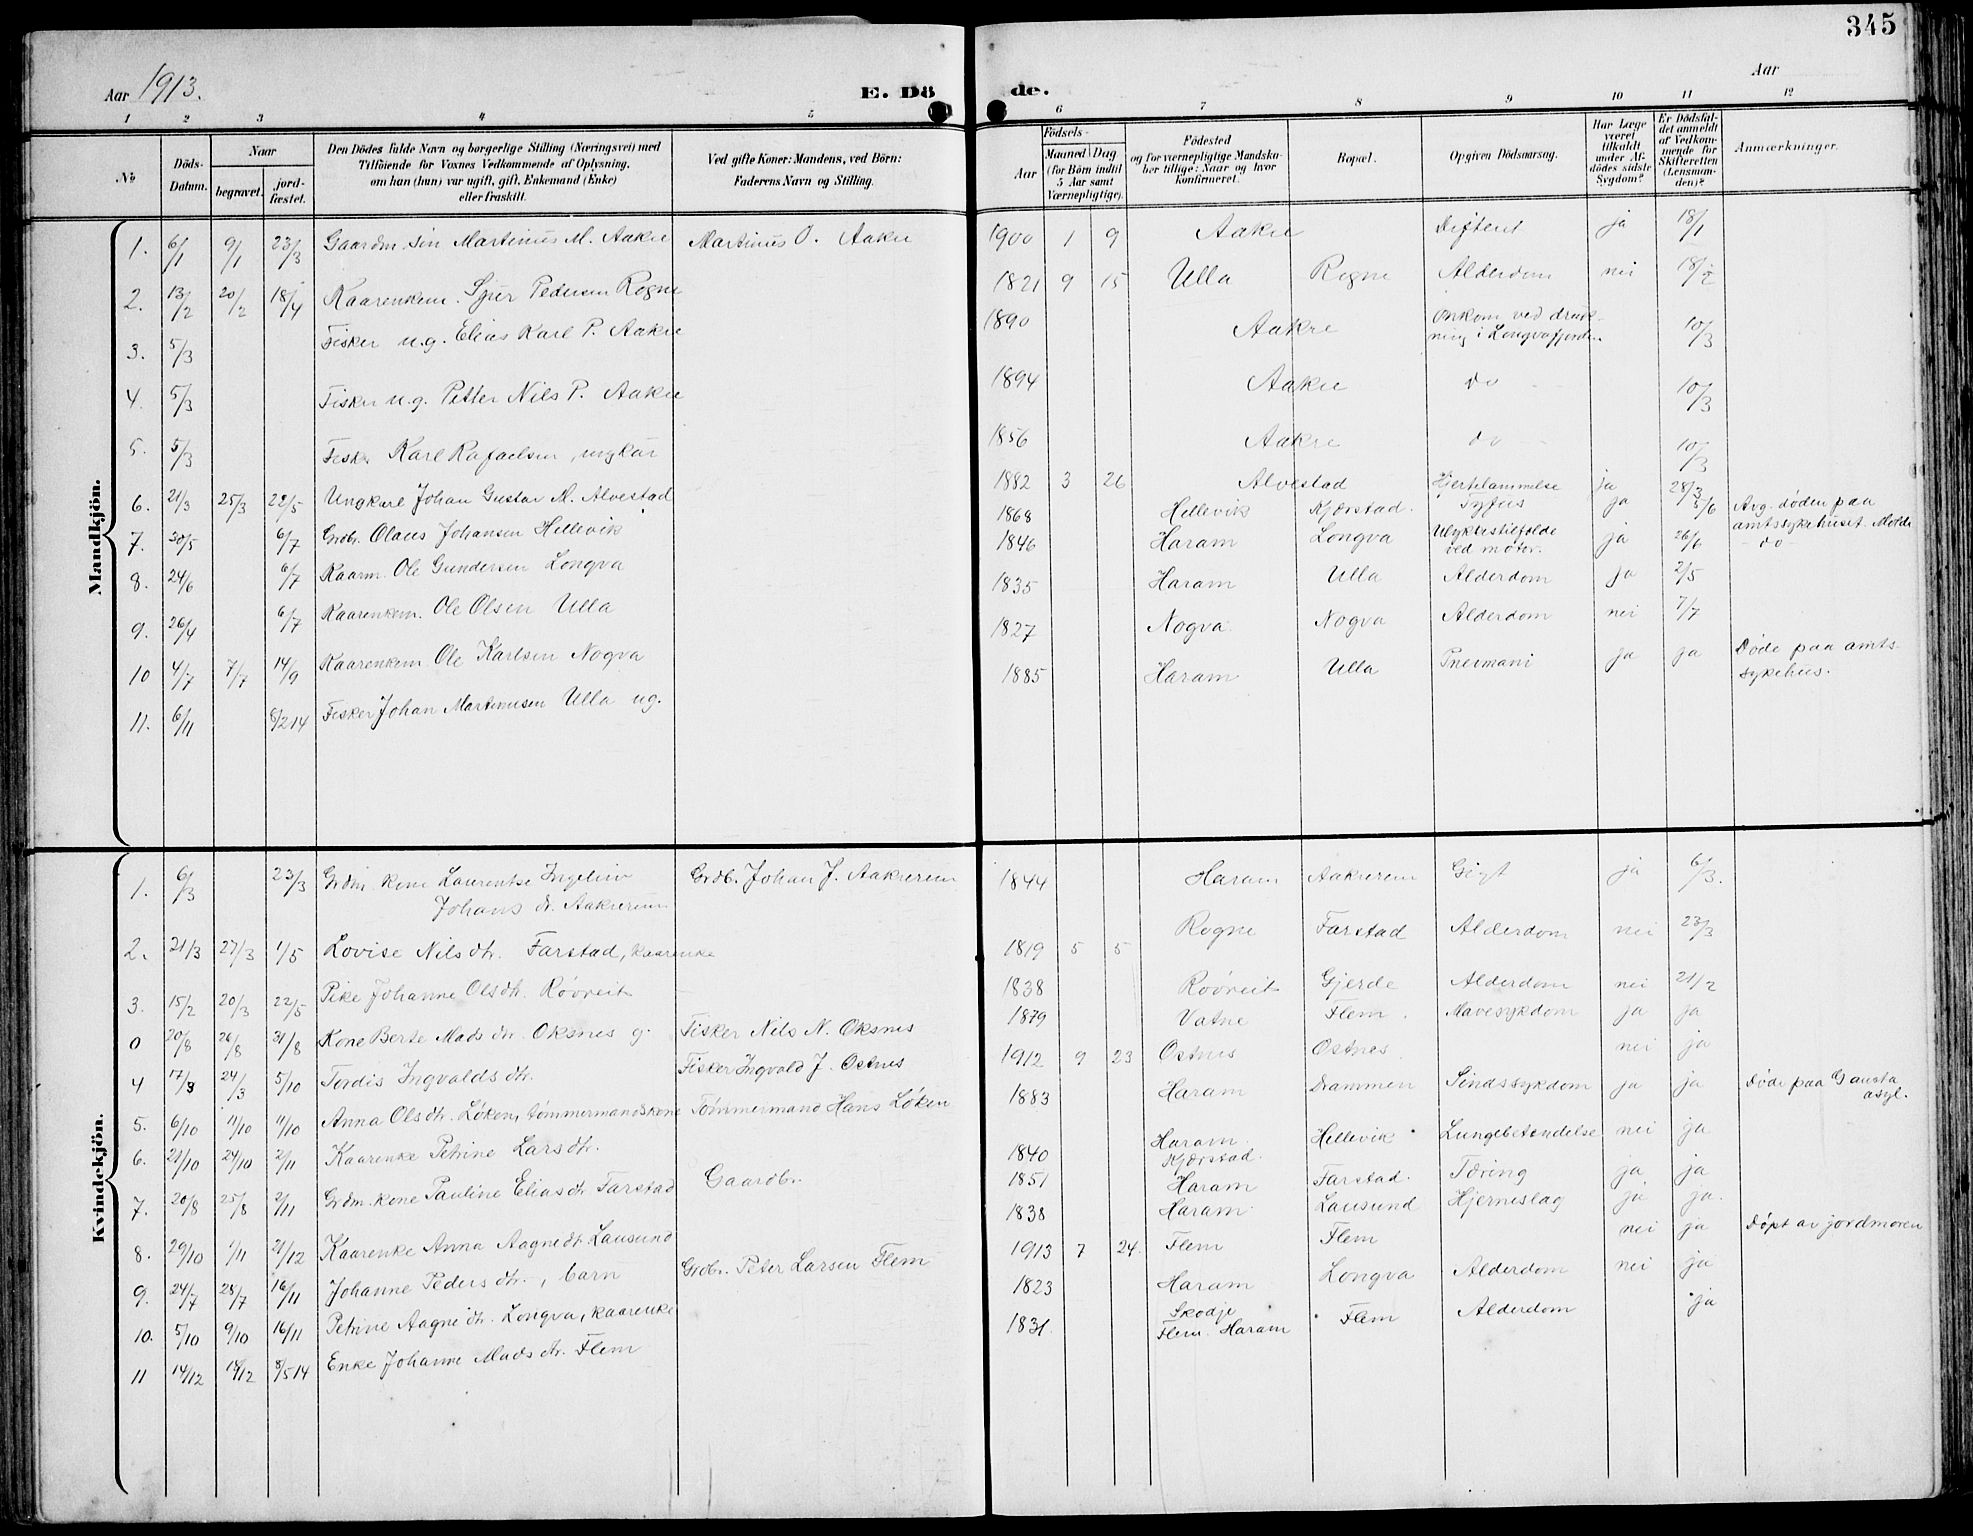 345
Aar 1913.
E. Dö
de.
Aar
1 2 3 4 5 6 7 8 9 10 11 12
No
Döds-Datum.
Naar
begravet.
jord-fæstet.
Den Dödes fulde Navn og borgerlige Stilling (Næringsvei) med
Tilföiende for Voxnes Vedkommende af Oplysning,
om han (hun) var ugift, gift, Enkemand (Enke)
eller fraskilt.
Ved gifte Koner: Mandens, ved Börn:
Faderens Navn og Stilling.
Födsels-
Aar
Maaned Dag
(for Börn indtil
5 Aar samt
Værnepligtige).
Födested
og for værnepligtige Mandskaber tillige: Naar og hvor
konfirmeret.
Bopæl.
Opgiven Dödsaarsag.
Har Læge
været
tilkaldt
under Afdödes sidste
Sygdom?
Er Dödsfaldet anmeldt
af Vedkommende for
Skifteretten
(Lensmanden)?
Anmærkninger.
Mandkjön.
1. 6/1 9/1 23/3 Gaardm. sön Martinus M. Aakre Martinus O. Aakre 1900 1 9 Aakre Difterit ja 18/1
2. 13/2 20/2 18/4 Kaarenkem. Sjur Pedersen Rogne 1821 9 15 Ulla Rogne Alderdom nei 18/2
3. 5/3 Fisker u.g. Elias Karl P. Aakre 1890 Aakre Omkom ved drukning i Longvafjorden. 10/3
4. 5/3 Fisker u.g. Petter Nils P. Aakre 1894 Aakre do 10/3
5. 5/3 Fisk. Karl Rafaelsen, ungkar 1856 Aakre do 10/3
6. 21/3 25/3 22/5 Ungkarl Johan Gustav M. Alvestad 1882 3 26 Alvestad Hjertelammelse ja 28/3
7. 30/5 6/7 Grdbr. Olaus Johansen Hellevik 1868 Hellevik Kjærstad. Tyfus ja 5/6 Avg. døden paa amtssykehuset. Molde
8. 24/6 6/7 Kaarm. Ole Gundersen Longva 1846 Haram Longva Ulykkestilfælde ved motor. ja 26/6 - do -
9. 26/4 6/7 Kaarenkem. Ole Olsen Ulla 1835 Haram Ulla Alderdom ja 2/5
10 4/7 7/7 14/9 Kaarenkem. Ole Karlsen Nogva 1827 Nogva Nogva Alderdom nei 7/7
11. 6/11 8/2 14 Fisker Johan Martinusen Ulla ug. 1885 Haram Ulla Pnevmani ja ja Døde paa amts sykehus.
Kvindekjön.
1. 6/3 23/3 Grdm. kone Laurentse Ingeliv Johans dr. Aakrerem Grdb. Johan J. Aakrerem 1844 Haram Aakrerem Gigt ja 6/3.
2. 21/3 27/3 1/5 Lovise Nils dtr. Farstad, kaarenke 1819 5 5 Rogne Farstad Alderdom nei 23/3
3. 15/2 20/3 22/5 Pike Johanne Olsdtr. Røvreit 1838 Røvreit Gjerde Alderdom nei 21/2
0 20/8 26/8 31/8 Kone Berte Mads dtr. Oksnes g. Fisker Nils N. Oksnes 1879 Vatne Flem. Mavesykdom ja ja
4 17/3 24/3 5/10 Tordis Ingvalds dtr. Fisker Ingvald J. Ostnes 1912 9 23 Ostnes Ostnes. nei ja
5. 6/10 11/10 11/10 Anna Olsdtr. Løken, tømmermandskone Tømmermand Hans Løken 1883 Haram Drammen Sindssykdom ja ja Døde paa Gausta asyl.
6. 21/10 24/10 2/11 Kaarenke Petrine Larsdtr. 1840 Haram. Kjærstad. Hellevik Lungebetændelse nei ja
7. 20/8 25/8 2/11 Grdm. kone Pauline Eliasdtr. Farstad Gaardbr. 1851 Haram Farstad. Tæring ja ja
8. 29/10 1/11 21/12 Kaarenke Anna Aagnedtr. Lausund 1838 Haram Lausund Hjerneslag ja ja.
9. 24/7 28/7 16/11 Johanne Peders dtr., barn Grdbr. Peter Larsen Flem 1913 7 24. Flem Flem nei ja Døpt av jordmoren
10. 5/10 9/10 16/11 Petrine Aagne dtr. Longva, kaarenke 1823 Haram Longva Alderdom nei ja
11 14/12 18/12 8/5 14 Enke Johanne Mads dtr. Flem 1831. Skodje Flem. Haram Flem Alderdom ja